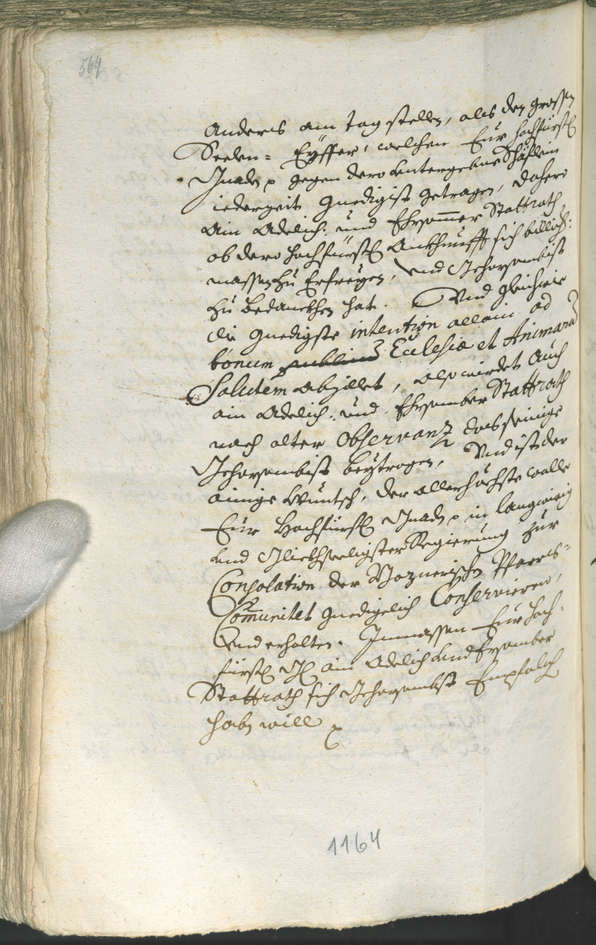 564
anders am tag stellen, als den grossen
Seelen= Eyffer, welchen Eur hochfürstl
Gnadn gegen dero Untergebne Schäfflein
iederzeit gnedigist getragen, dahero
ain Adelich: und Ehrsamer Stattrath
ob dero hochfürstl Ankhunfft sich billich=
massen zu Erfreyen, und gehorsambist
zu bedankhen hat. Und gleichwie
die gnedigste intention allain ad
bonum publicum Ecclesiæ et Animarum
Salutem abzillet, also wirdet auch
ain Adelich: und Ehrsamber Stattrath
nach alter Observanz das seinige
gehorsambist beytragen, Und ist der
ainige Wuntsch, der allerhöchste wolle
Eur Hochfürstl Gnadn in langwirig
und Glickhseeligister Regierung zur
Consolation der Boznerischen Pfarrs=
Communitet gnedigelich Conservieren,
Und erhalten. Inmassen Eur hoch=
fürstl Gn ain Adelich und Ersamber
Stattrath sich gehorsambst Empfolch
haben will
1164